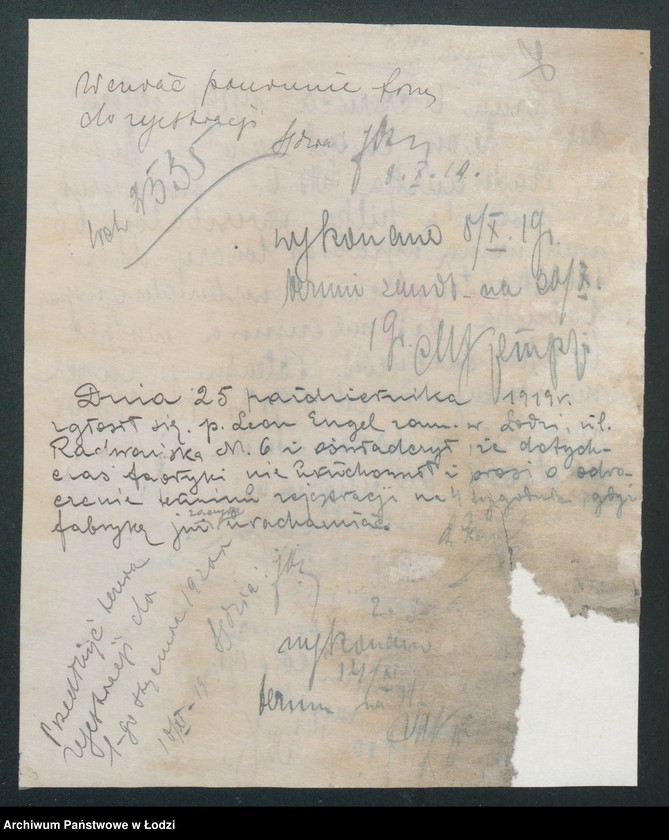 Wezwać ponownie firmę
do rejestracji
Sędzia
8.X.19.
2535
wykonano 8/X.19r.
termin zawit. na 20/X.
19r.
Dnia 25 październnika 1919 r.
zgłosił się p. Leon Engel zam. w Łodzi, ul.
Radwańska № 6 i oświadczył, że dotych-
czas fabryki nie uruchomił i prosi o odro-
czenie terminu rejestracji na 4 tygodnie, gdyż
fabrykę już zaczyna uruchamiać.
Przedłużyć termin
rejestracji do
1-go stycznia 1920 r.
10/XI-19 Sędzia:
wykonano
12/XI
termin na
Archiwum Państwowe w Łodzi